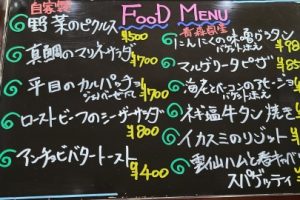 FOOD MENU
自家製
野菜のピクルス ¥500
真鯛のマリネサラダ ¥700
平目のカルパッチョ
ジェノベーゼソース ¥700
ローストビーフのシーザーサラダ ¥800
アンチョビバタートースト ¥400
青森県産
にんにくの味噌グラタン
バゲット添え
マルゲリータピザ
海老とベーコンのアヒージョ
バゲット添え
ネギ塩牛タン焼き
イカスミのリゾット
雲仙ハムと春キャベツ
スパゲッティ